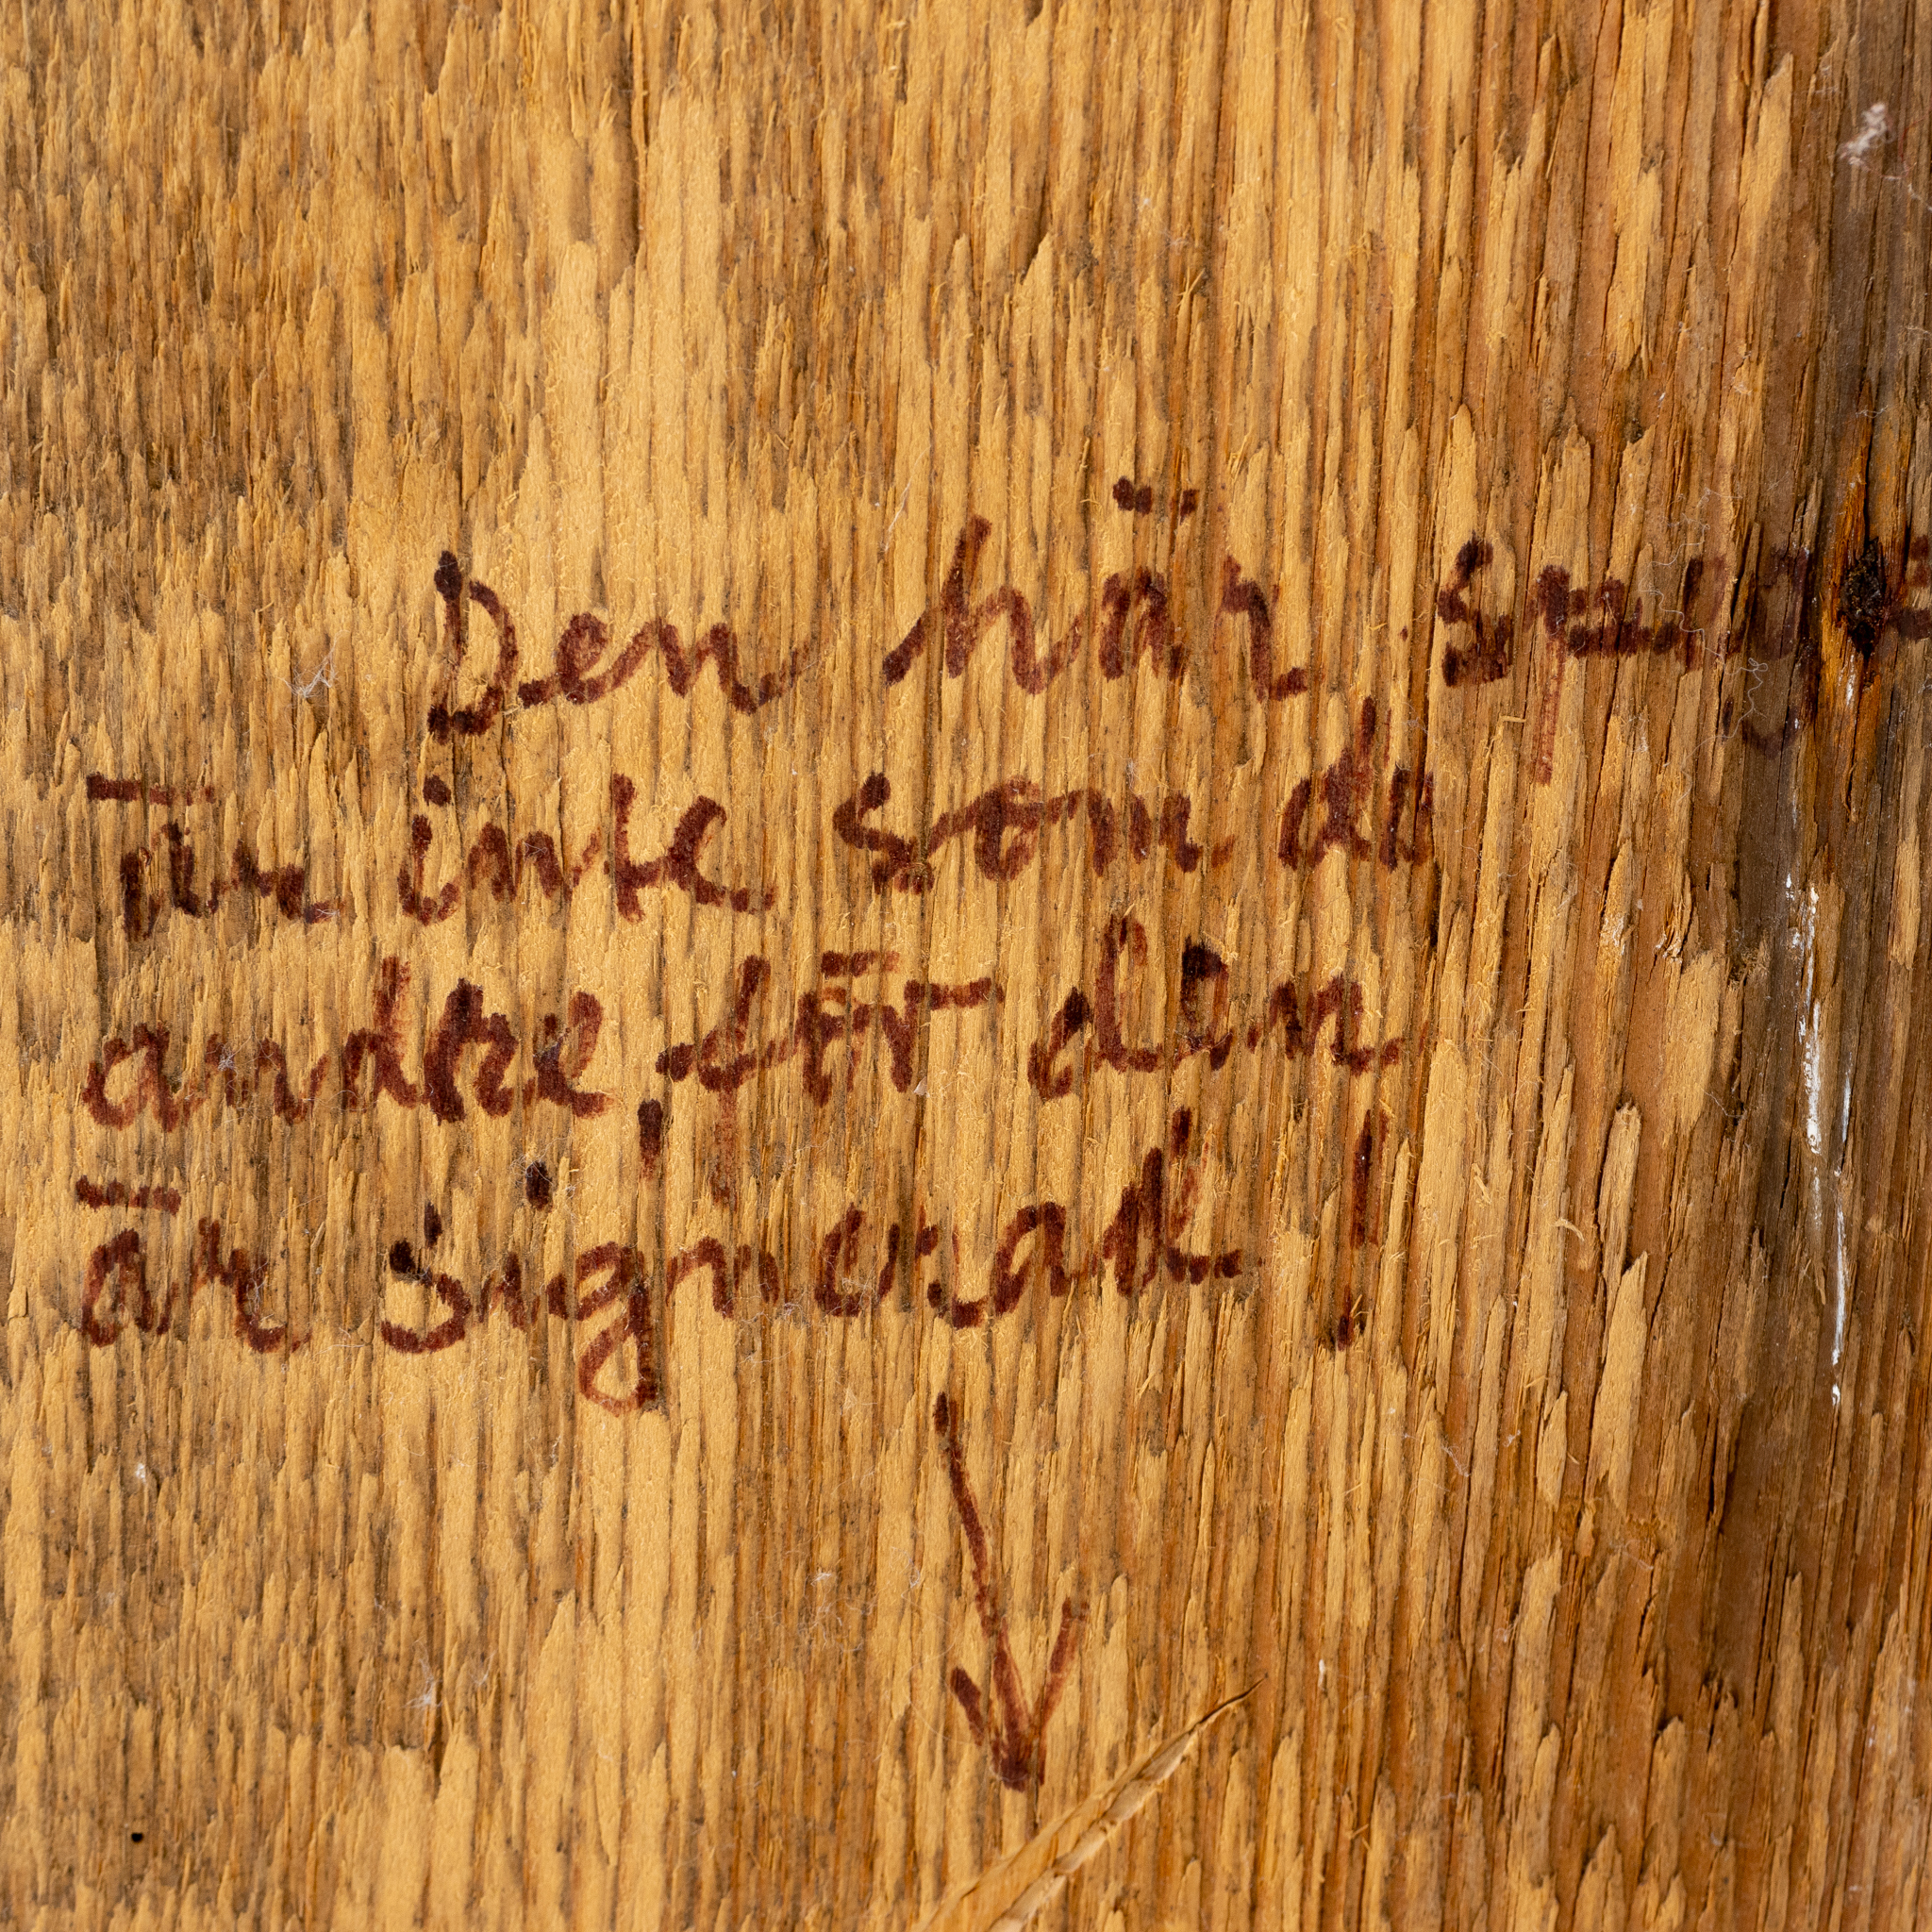 Den här
är inte som de
andra, för den
är signerad!